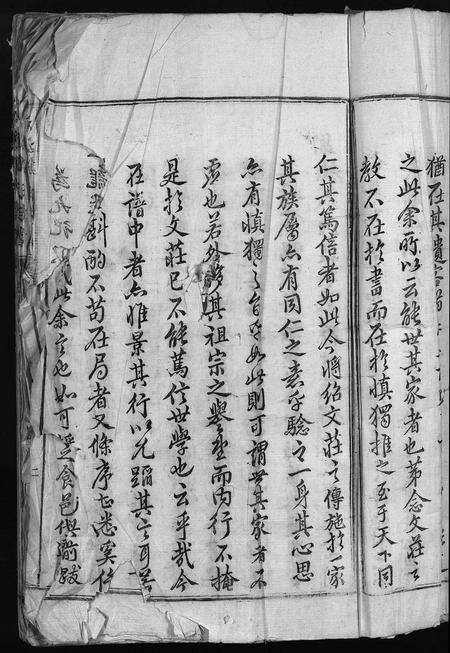 猶在其遺言
之此余所以云能世其家者也第念文莊之
教不在於書而在於慎獨推之至于天下同
仁其篤信者如此今將紹文莊之傳施於家
其族屬亦有同仁之意乎驗之一身其心思
亦有慎獨之自乎如此則可謂世其家者不
虛也若外務其祖宗之譽望而內行不掩
是於文莊已不能篤信世學也云乎哉今
在譜中者亦惟景其行以允蹈其言耳
斟酌不苟在局者又條序正悉冀
此余言也如可邑